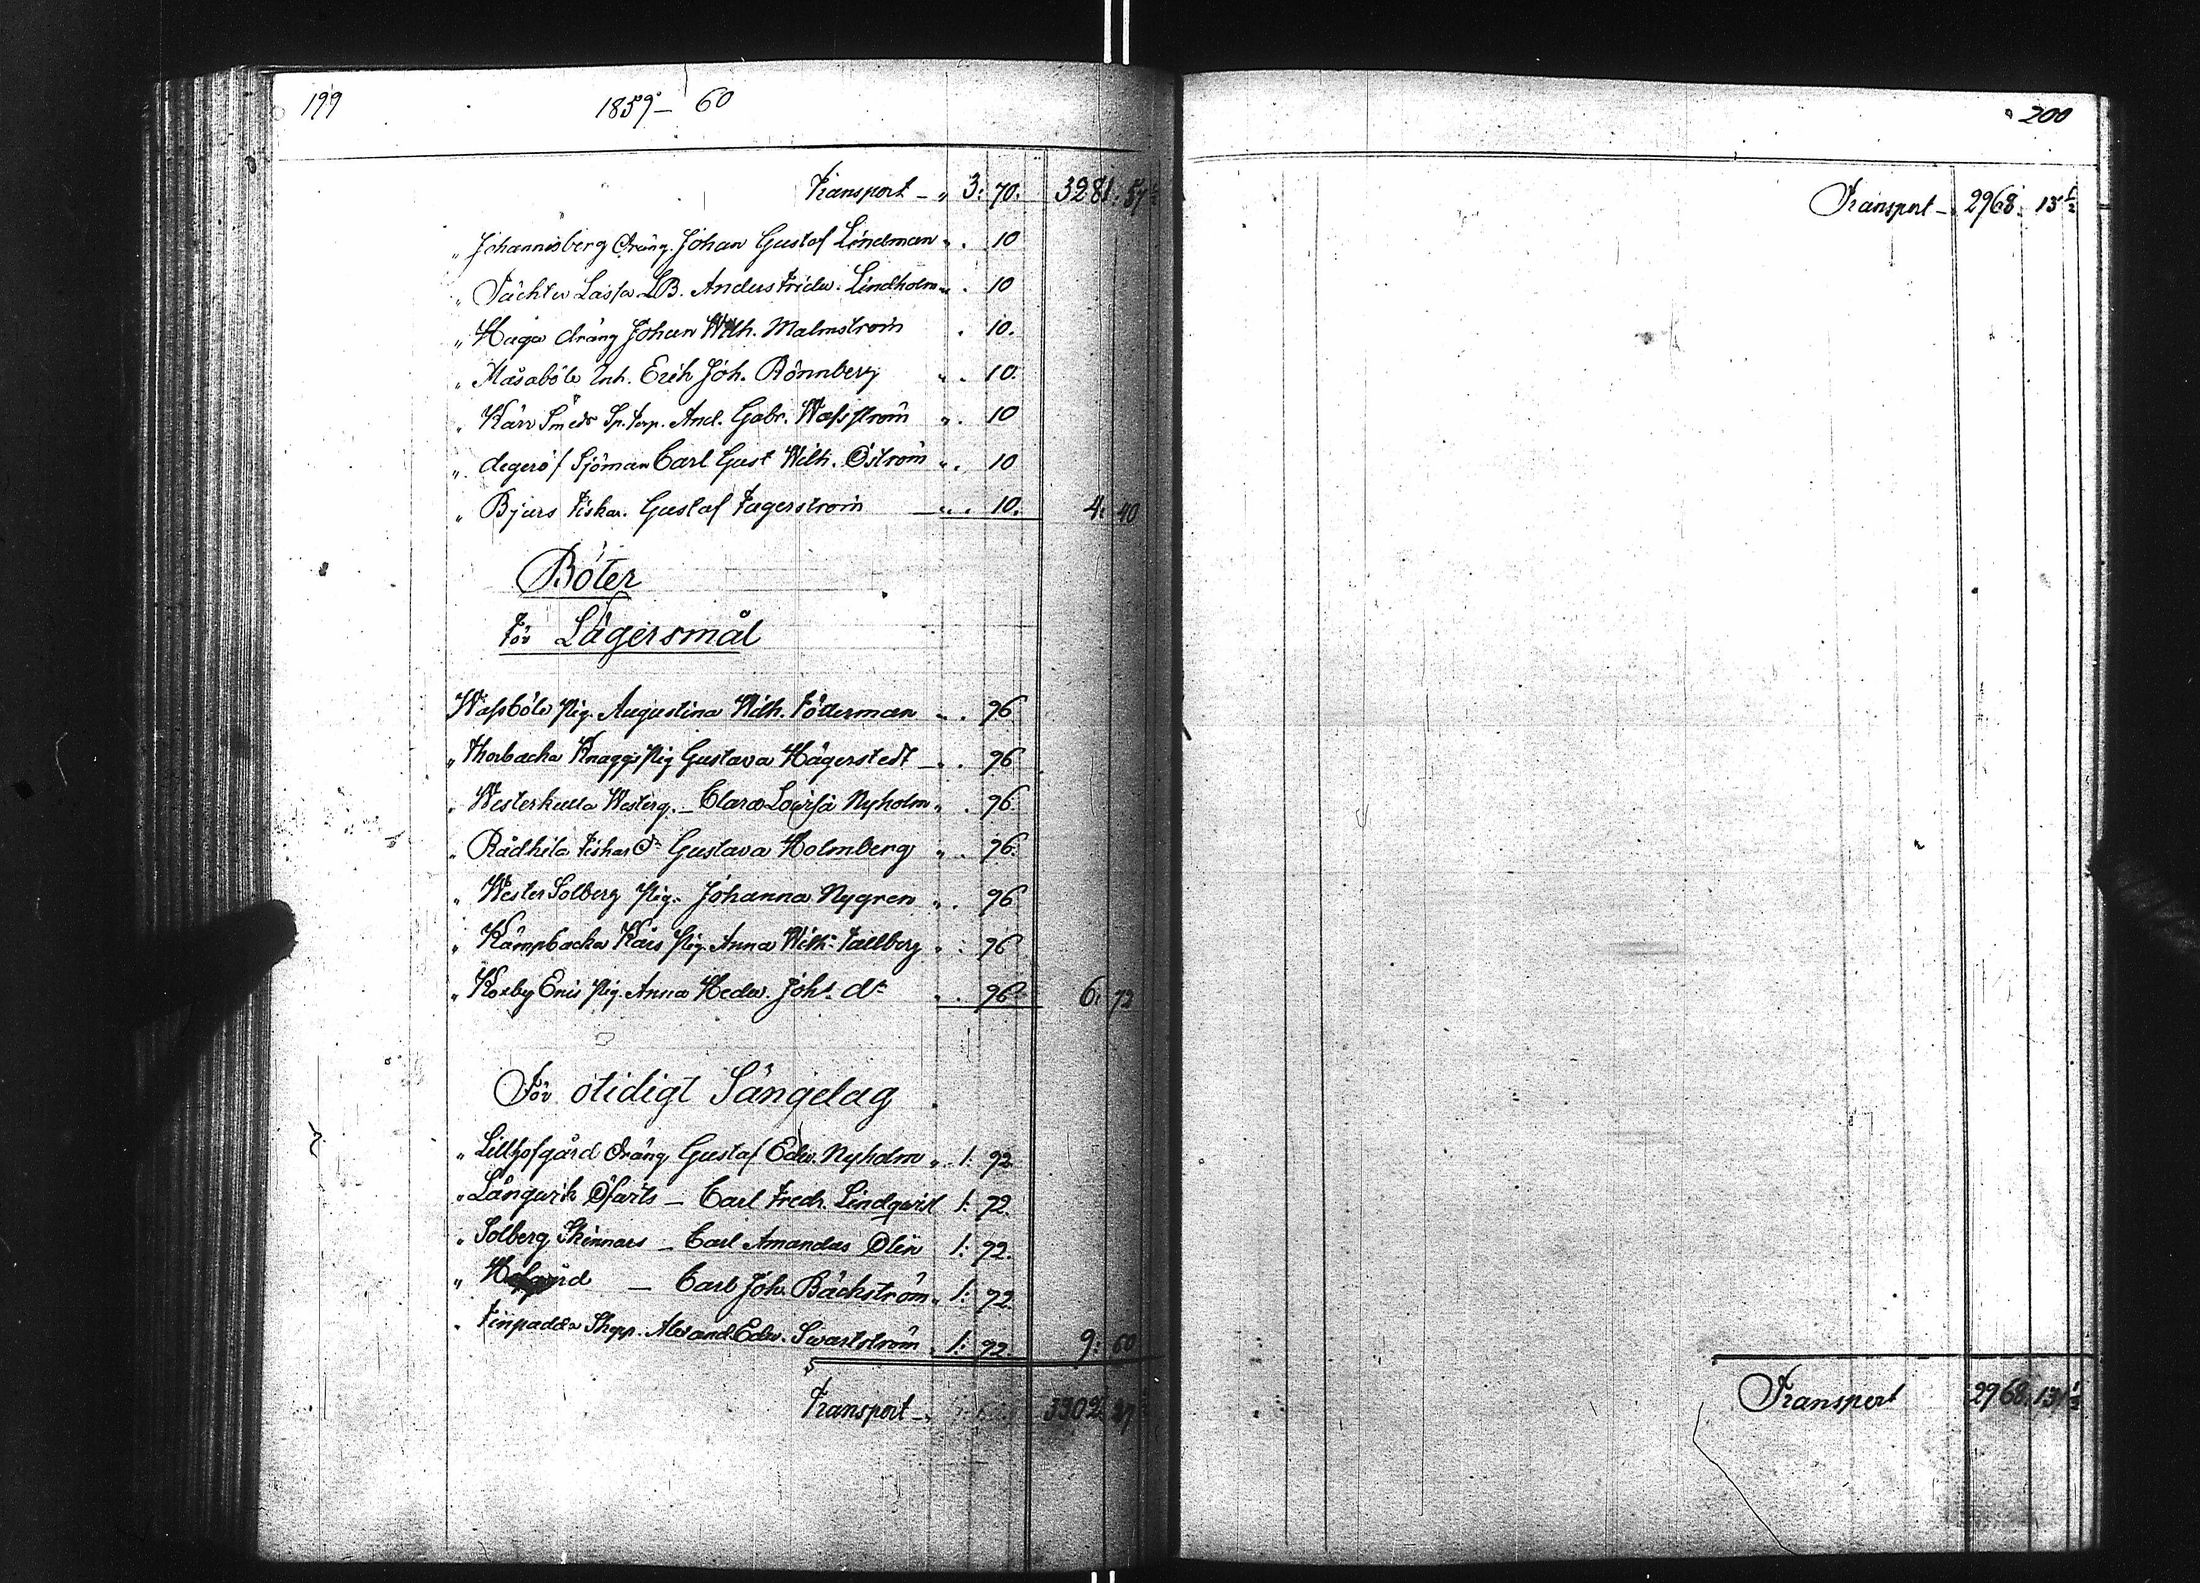 199 1859- 60
Transport - „ 3: 70. 3281: 57½
„ Johannisberg dräng. Johan Gustaf Lindman „ . 10
„ Lassa LB. Anders Fridr. Lindholm „ . 10
„ Haga dräng Johan Wilh. Malmström . 10.
„ Måsabôle Inh. Erik Joh. Rönnberg „ . 10.
„ Kärr Smeds Sp. torp. And. Gabr. Wasström „ . 10
„ degerö Sjöman Carl Gust Wilh. Öström „ . 10
„ Bjurs Fiskar. Gustaf Fagerström „ . 10. 4: 40
Böter
För Lägersmål
Wassböle Pig. Augustina Wilh. Fötterman „ . 96
„ Thorbacka Knaggs Pig Gustava Hägerstedt - „ . 96
„ Westerkulla Westerg. - Clara Lovisa Nyholm „ . 96
„ Rådhila Fiskar dr Gustava Holmberg „ . 96.
„ Wester Solberg Pig. Johanna Nygren „ . 96
„ Kämpbacka Kårs Pig. Anna Wilh: Tallberg „ . 96
„ Koxby Eris Pig. Anna Hedv. Johs. dr „ . 96 6: 72
För otidigt Sängelag
„ Lillhofgård dräng Gustaf Edv. Nyholm „ 1: 92
„ Långvik Ofvarts - Carl Fredr. Lindqvist 1: 92.
„ Solberg Skinnars - Carl Amandus Olin 1: 92.
„ Hofgård - Carl Joh. Bäckström „ 1: 92.
„ Finpadda Skepp. Alexand. Edv. Swartström „ 1: 92. 9: 60
Transport - „ 3302
200
Transport - 2968: 13½
Transport 2968: 13½